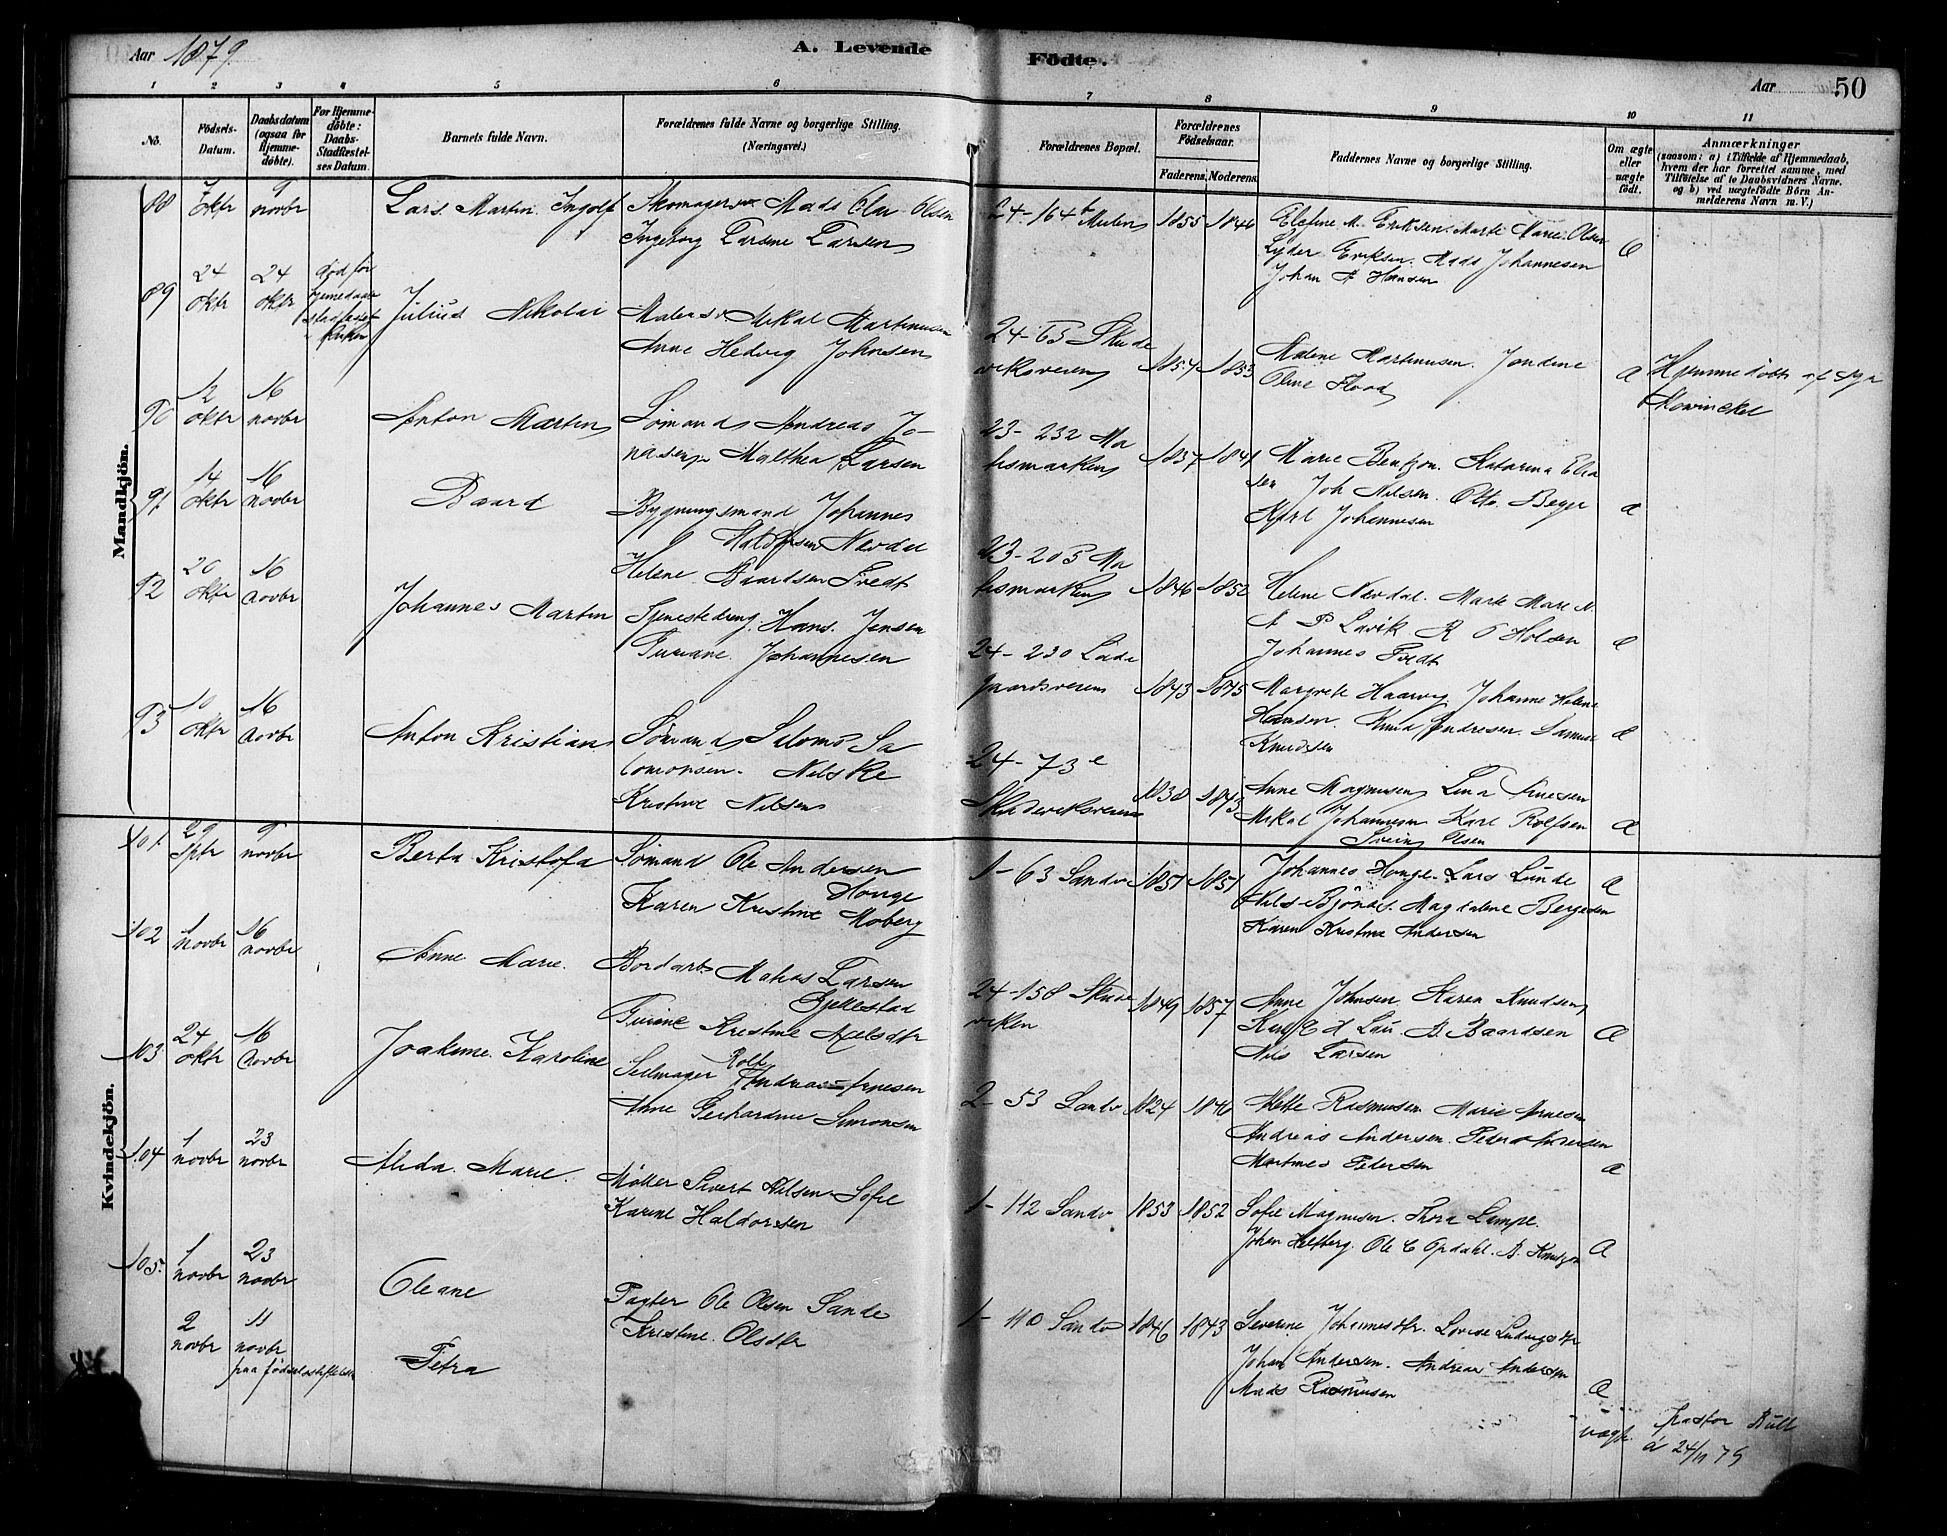 Aar 1879.
A. Levende Födte.
Aar
50
1 2 3 4 5 6 7 8 9 10 11
No.
Födsels-Datum.
Daabsdatum (ogsaa for Hjemmedöbte).
For Hjemmedöbte: Daabs-Stadfæstelses Datum.
Barnets fulde Navn.
Forældrenes fulde Navne og borgerlige Stilling.
(Næringsvei.)
Forældrenes Bopæl.
Forældrenes Födselsaar.
Faderens. Moderens.
Faddernes Navne og borgerlige Stilling.
Om ægte eller uægte födt.
Anmærkninger
(saasom: a) i Tilfælde af Hjemmedaab, hvem der har forrettet samme, med Tilföielse af to Daabsvidners Navne. og b) ved uægtefödte Börn Anmelderens Navn m. V.)
Mandkjön.
88 7 oktr 9 novbr
Lars Martin Ingolf
Skomagersv. Mads Olai Olsen
Ingeborg Larsine Larsen
24-164 b Mulen 1855 1846
Elefine M. Eriksen. Marte Marie Olsen
Lyder Eriksen. Mads Johannesen
Johan A Hansen
89 24 oktr 24 oktr
død før
Julius Nikolai
Malersv. Mikal Martinusen
Anne Hedvig Johnsen
24-65 Skude
viksveien 1857 1853
Malene Martinusen. Jondine
Oline Flood
Hjemmedøbt af
Mowinckel
90 12 oktr 16 novbr
Anton Martin
Sømand Andreas Jo-
nasen Malthea Larsen
23-232 Ma
1837 1841
Marie Bentzon. Katarina Elia
sen Joh Nilsen. Otto Beyer
Karl Johannesen
91 14 oktr 16 novbr
Baard
Bygningsmand Johannes
Haldorsen Nævdal
Helene Baardsen Tvedt
23-205 Ma
1846 1852
Helene Nævdal. Marte Marie N.
A P Lavik R O Holsen
Johannes Tvedt
92 20 oktr 16 novbr
Johannes Martin
Tjenestedreng Hans Jensen
Turiane Johannesen
24-230 Lade
gaardsveien 1843 1845
Margrete Haarvig. Johanne Helene
Hansen. Knud Andresen. Samuel
Knudsen
93 10 oktr 16 novbr
Anton Kristian
Sømand Salomo Sa
lomonsen. Nilske
Kristine Nilsen
24-73 e
Skudeviksveien 1838 1843
Anne Magnusen Lina Arnesen
Mikal Johannesen Karl Rolfsen
Svein Olsen
Kvindekjön.
101 29 Sptr 9 novbr
Berta Kristofa
Sømand Ole Andersen
Houge
Karen Kristine Moberg
1-63 Sandv 1851 1851
Johannes Houge. Lars Lunde
Nils Bjönnes. Magdalene Bergesen
Karen Kristine Andersen
102 1 novbr 16 novbr
Anne Marie.
Bordarb. Matias Larsen
Gjellestad
Turine Kristine Axelsdtr
24-158 Skude
viken 1849 1857
Anne Johnsen Karen Knudsen
B Baardsen
Nils Larsen
103 24 oktr 16 novbr
Joakime Karoline
Seilmager Rolf
Andreas Arnesen
Anne Gerhardine Simonsen
2-53 Sandv 1824 1846
Mette Rasmusen Marie Arnesen
Andreas Andersen. Peder Andersen
Martines Pedersen
104 1 novbr 23 novbr
Alida Marie.
Møller Sivert Nilsen Sofie
Karine Haldorsen
1-112 Sandv 1853 1852
Sofie Magnusen. Thora Lampe.
Johan Heltberg. Ole C Opdahl. B. Knudsen
105. 1 novbr 23 novbr
Oleane
Pagter Ole Olsen Sande
Kristine Olsdtr
1-110 Sandv 1846 1843
Severine Johannesdtr. Lovise Ludvigsdtr
Johan Andersen. Andreas Andersen
Mads Rasmusen
2 novbr 11 novbr
paa fødselsstiftelsen
Petra
uægte.
pastor Bull
24/11 79